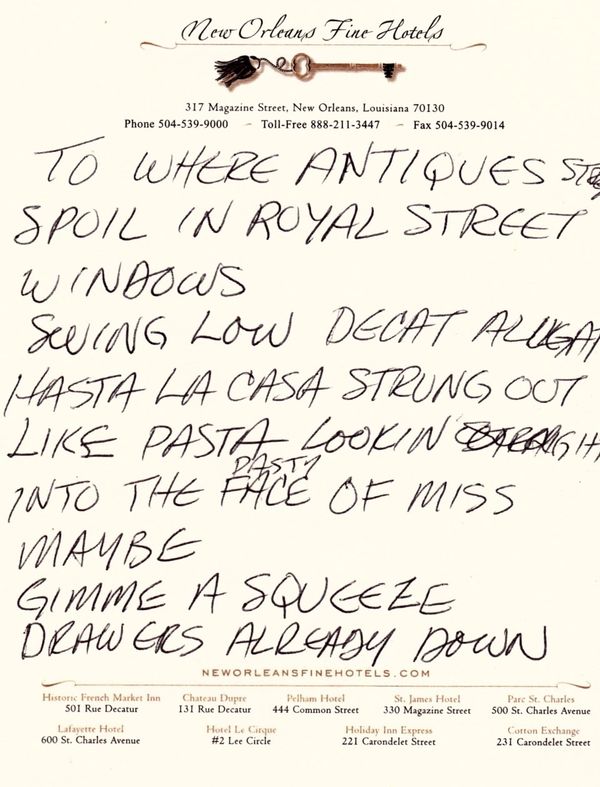 New Orleans Fine Hotels
317 Magazine Street, New Orleans, Louisiana 70130
Phone 504-539-9000 ~ Toll-Free 888-211-3447 ~ Fax 504-539-9014
TO WHERE ANTIQUES
SPOIL IN ROYAL STREET
WINDOWS
SWING LOW DECAT
HASTA LA CASA STRUNG OUT
LIKE PASTA LOOKIN
PASTY
INTO THE FACE OF MISS
MAYBE
GIMME A SQUEEZE
DRAWERS ALREADY DOWN
NEWORLEANSFINEHOTELS.COM
Historic French Market Inn Chateau Dupre Pelham Hotel St. James Hotel Parc St. Charles
501 Rue Decatur 131 Rue Decatur 444 Common Street 330 Magazine Street 500 St. Charles Avenue
Lafayette Hotel Hotel Le Cirque Holiday Inn Express Cotton Exchange
600 St. Charles Avenue #2 Lee Circle 221 Carondelet Street 231 Carondelet Street